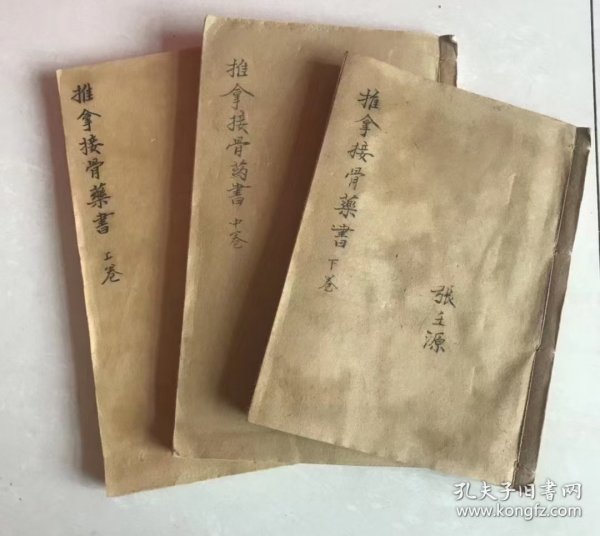 推拿接骨藥書
上卷
推拿接骨药書
中卷
推拿接骨藥書
下卷
張玉源
孔夫子旧书网
www.kongfz.com